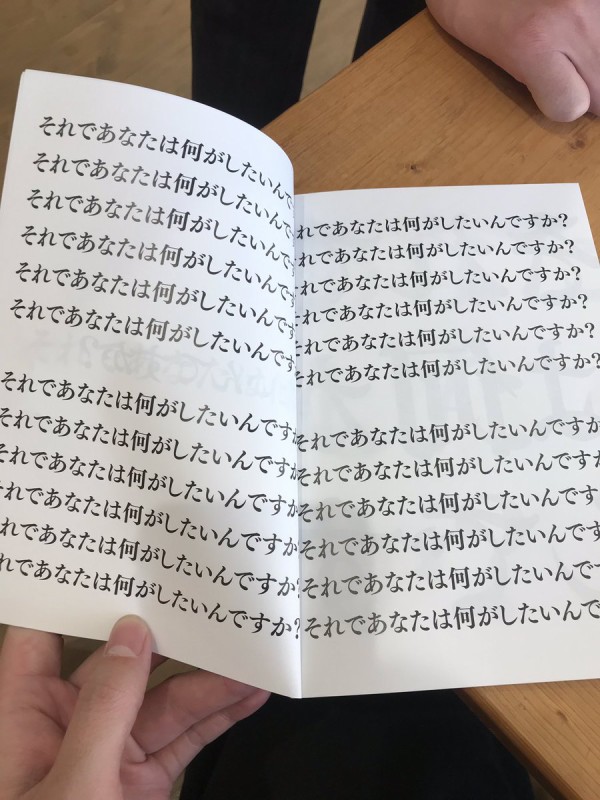 それであなたは何がしたいんで
それであなたは何がしたいんで
それであなたは何がしたいんで
それであなたは何がしたいんで
それであなたは何がしたいんです
それであなたは何がしたいんです
それであなたは何がしたいんですか
それであなたは何がしたいんですか
それであなたは何がしたいんですか
それであなたは何がしたいんですか
れであなたは何がしたいんですか?
れであなたは何がしたいんですか?
れであなたは何がしたいんですか?
れであなたは何がしたいんですか?
れであなたは何がしたいんですか?
れであなたは何がしたいんですか?
れであなたは何がしたいんですか?
それであなたは何がしたいんですか?
それであなたは何がしたいんですか
それであなたは何がしたいんですか
それであなたは何がしたいんです
それであなたは何がしたいんです
それであなたは何がしたいんで
それであなたは何がしたいんで